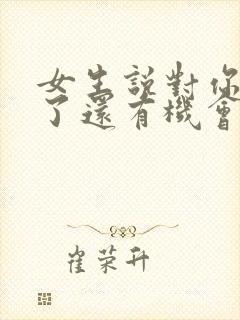 女生説對你
了還有機會
崔荣升